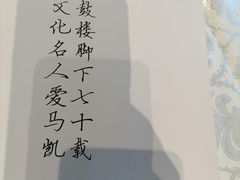 鼓楼脚下七十载
文化名人爱马凯